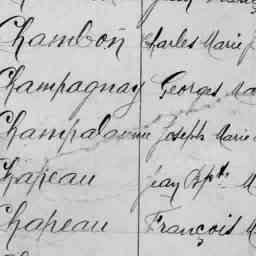 Chambon Charles Marie
Champagnay Georges Ma
Champalaume Joseph Marie
Chapeau Jean Bpte M
Chapeau François M